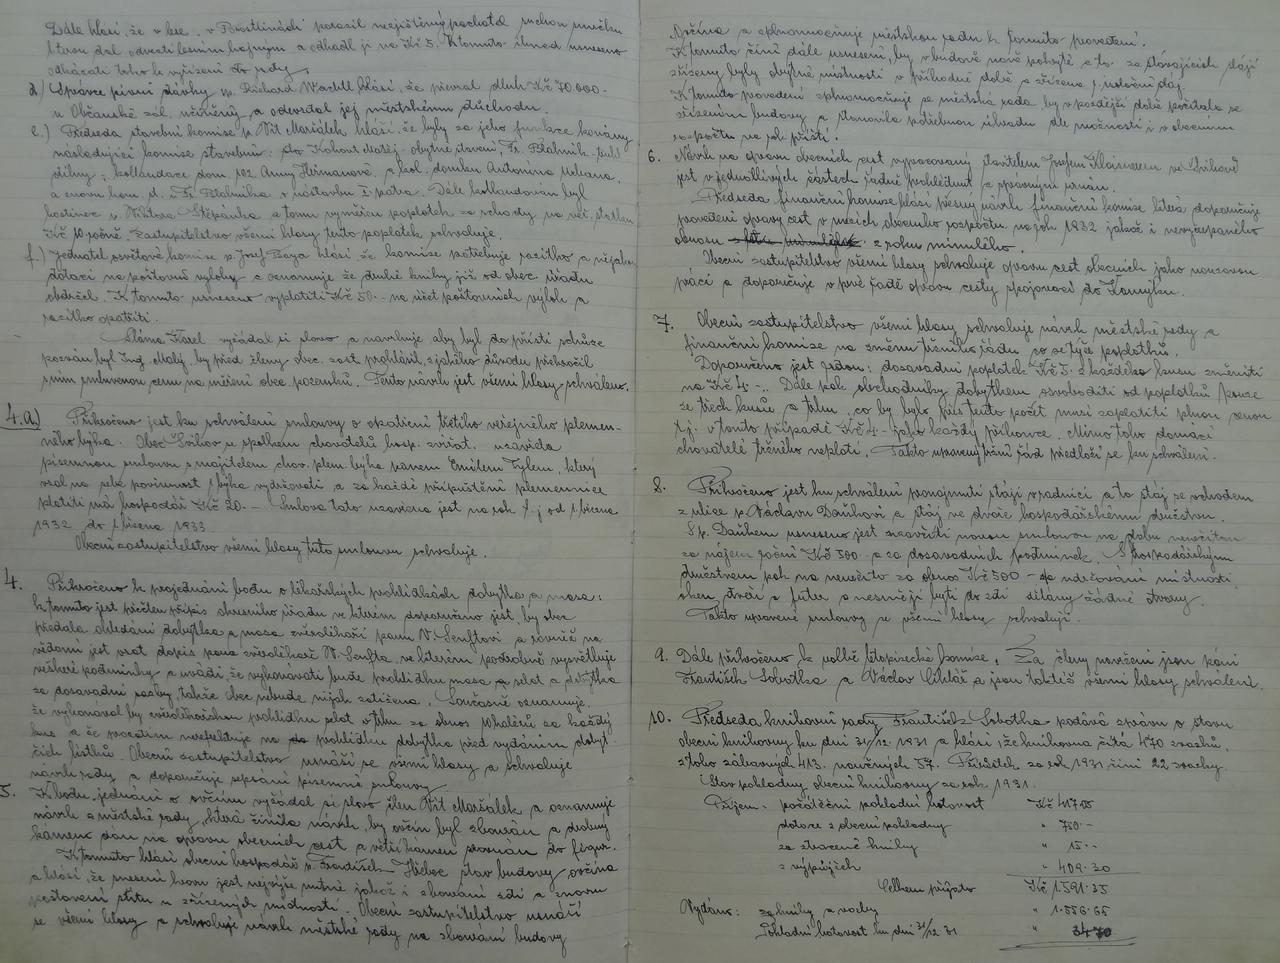 Dále hlásí, že v lese v
a odhadl ji na Kč 5. K tomuto ihned usneseno
odkázati toho k vyřízení do rady.
d.) Správce pivní dávky p. Richard Wachtl hlásí, že převzal dluh Kč 70.000.-
u Občanské zál. učiněný a odevzdal jej městskému důchodu.
e.) Předseda stavební komise p. Vít Maršálek hlásí, že byly za jeho funkce konány
následující komise stavební: do Kohout Matěj - obytné stavení, Fr. Blahník
dílny; kollaudace dom 102 Anny Heřmanové a kol. domku Antonína
a znovu kom. u Fr. Blahníka v nástavbu I. patra. Dále kollaudován byl
hostinec u Viktora Štěpánka a tomu vyměřen poplatek za schody na
Kč 10 ročně. Zastupitelstvo všemi hlasy tento poplatek schvaluje.
f.) Jednatel osvětové komise p. Josef hlásí že komise potřebuje razítko a nějakou
dotaci na poštovní výlohy a oznamuje že druhé knihy již od obec. úřadu
obdržel. K tomuto usneseno vyplatiti Kč 50.- na účet poštovních výloh a
razítko opatřiti.
Sláma Karel vyžádal si slovo a navrhuje aby byl do příští schůze
pozván byl Ing. Malý, by před členy obec. zast. prohlásil, z jakého důvodu překročil
s ním smluvenou cenu na měření obec. pozemků. Tento návrh jest všemi hlasy schválen.
4.a.) Přikročeno jest ku schválení smlouvy o opatření třetího veřejného plemen-
ného býka. Obec se spolkem chovatelů hosp. zvířat. uzavírá
písemnou smlouvu s majitelem chov. plem. býka panem Emilem, který
vzal na sebe povinnost býka vydržovati a za každé připuštění plemennice
platiti má hospodář Kč 20.- Smlova tato uzavřena jest na rok t.j. od 1 března
1932 do 1 března 1933.
Obecní zastupitelstvo všemi hlasy tuto smlouvu schvaluje.
4. Přikročeno k projednání bodu o lékařských prohlídkách dobytka a masa:
k tomuto jest přečten přípis okresního úřadu ve kterém doporučeno jest, by obec
předala ohledání dobytka a masa zvěrolékaři panu V. Senftovi a rovněž na
vědomí jest vzat dopis pana zvěrolékaře V. Senfta, ve kterém podrobně vysvětluje
veškeré podmínky a uvádí, že vykonávati bude prohlídku masa a selat a dobytka
za dosavadní sazby, takže obec nebude nijak zatížena. Současně oznamuje,
že vykonával by zvěrolékařskou prohlídku selat v trhu za obnos 50 haléřů za každý
kus a že prozatím nereflektuje na prohlídku dobytka před vydáním dobyt-
čích lístků. Obecní zastupitelstvo usnáší se všemi hlasy a schvaluje
návrh rady a doporučuje sepsání písemné smlouvy.
5. K bodu jednání o ovčínu vyžádal si slovo člen Vít Maršálek a oznamuje
návrh z městské rady, která činila návrh, by ovčín byl zbourán a drobný
kámen dán na opravu obecních cest a větší kámen srovnán do figur.
K tomuto hlásí obecní hospodář p. František Hřebec stav budovy ovčína
a hlásí, že snesení krovu jest nejvýše nutné jakož i zbourání zdí a znovu
postavení štítu u zřízených místností. Obecní zastupitelstvo usnáší
se všemi hlasy a schvaluje návrh městské rady na zbourání budovy
Ovčína a zplnomocňuje městskou radu k tomuto provedení.
K tomuto činí dále usnesení, by v budově nově pokryté a to ze stávajících stájí
zřízeny byly obytné místnosti v příhodné době a zřízena j. místení stáj.
K tomuto provedení zplnomocňuje se městská rada by v pozdější době počítala se
zřízením budovy a stanovila potřebnou úhradu dle možnosti i v obecním
rozpočtu na rok příští.
6. Návrh na opravu obecních cest vypracovaný stavitelem Josefem
jest v jednotlivých částech řádně prohlédnut a správným uznán.
Předseda finanční komise hlásí přesný návrh finanční komise která doporučuje
provedení opravy cest v mezích obecního rozpočtu na rok 1932 jakož i nevyčerpaného
obnosu z roku minulého.
Obecní zastupitelstvo všemi hlasy schvaluje opravu cest obecních jako nouzovou
práci a doporučuje v prvé řadě opravu cesty spojovací do Kamýku.
7. Obecní zastupitelstvo všemi hlasy schvaluje návrh městské rady a
finanční komise na změnu tržního řádu co se týče poplatků.
Doporučeno jest radou: dosavadní poplatek Kč 5.- z každého kusu změniti
na Kč 4.-. Dále pak obchodníky dobytkem osvoboditi od poplatků pouze
ze třech kusů z trhu, co by bylo přes tento počet musí zaplatiti plnou cenou
t.j. v tomto případě Kč 4 - jako každý příhonce. Mimo toho domácí
chovatelé tržného neplatí. Takto upravený tržní řád předloží se ku schválení.
8. Přikročeno jest ku schválení pronajmutí stájí v radnici a to stáj se vchodem
z ulice p. Václavu Daňkovi a stáj ve dvoře hospodářskému družstvu.
S p. Daňkem usneseno jest uzavříti novou smlouvu na dobu neurčitou
za nájem roční Kč 500 a za dosavadních podmínek. S hospodářským
družstvem pak na neurčito za obnos Kč 500 - udržování místnosti.
oken dveří a futer a nesmějí býti do zdí dělány žádné otvory.
Takto upravené smlouvy se všemi hlasy schvalují.
9. Dále přikročeno k volbě letopisecké komise. Za členy navrženi jsou páni
František Sobotka a Václav Cihlář a jsou taktéž všemi hlasy schváleni.
10. Předseda knihovní rady František Sobotka podává zprávu o stavu
obecní knihovny ku dni 31/12. 1931 a hlásí, že knihovna čítá 470 svazků,
z toho zábavných 413. naučných 57. Přírůstek za rok 1931 činí 22 svazky.
Stav pokladny obecní knihovny za rok 1931.
Příjem: počáteční pokladní hotovost Kč 417.05
dotace z obecní pokladny " 750.-
za ztracené knihy " 15.-
z výpůjček " 409.30
Celkem přijato Kč 1.591.35
Vydáno: za knihy a vazby " 1.556.65
Pokladní hotovost ku dni 31/12. 31 " 34.70